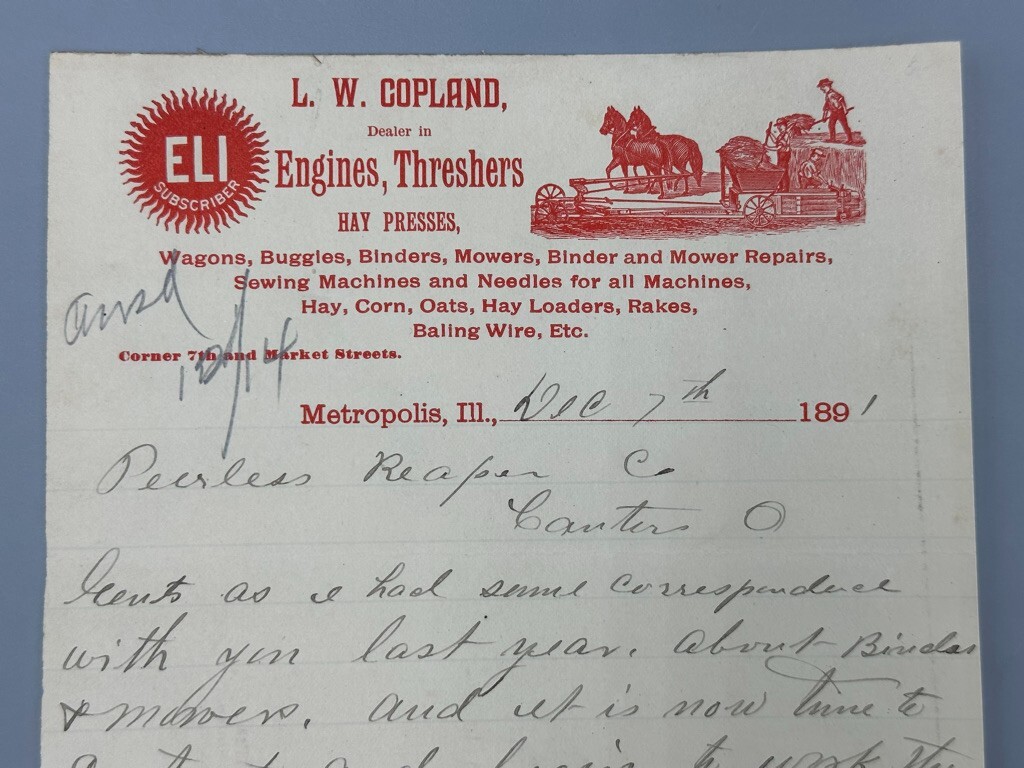 ELI
SUBSCRIBER
L. W. COPLAND,
Dealer in
Engines, Threshers
HAY PRESSES,
Wagons, Buggies, Binders, Mowers, Binder and Mower Repairs,
Sewing Machines and Needles for all Machines,
Hay, Corn, Oats, Hay Loaders, Rakes,
Baling Wire, Etc.
ansd
12/14
Corner 7th and Market Streets.
Metropolis, Ill., Dec 7th 1891
Peerless Reaper Co
O
Gents as I had some correspondece
with you last year. about Binders
& mowers. and it is now time to